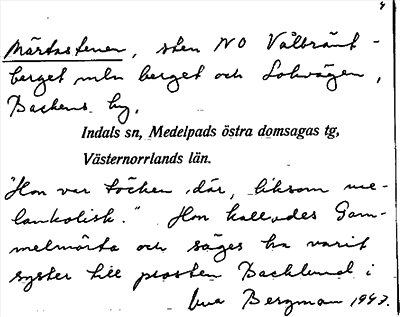 4
Märtastenen, sten NO Vålbränt-
berget mln berget och Lokvägen,
Backens by,
Indals sn, Medelpads östra domsagas tg,
Västernorrlands län.
"Hon var töcken där, liksom me-
lankolisk." Hon kallades Gam-
melmärta och säges ha varit
syster till prosten Backlund i
Bergman 1943.